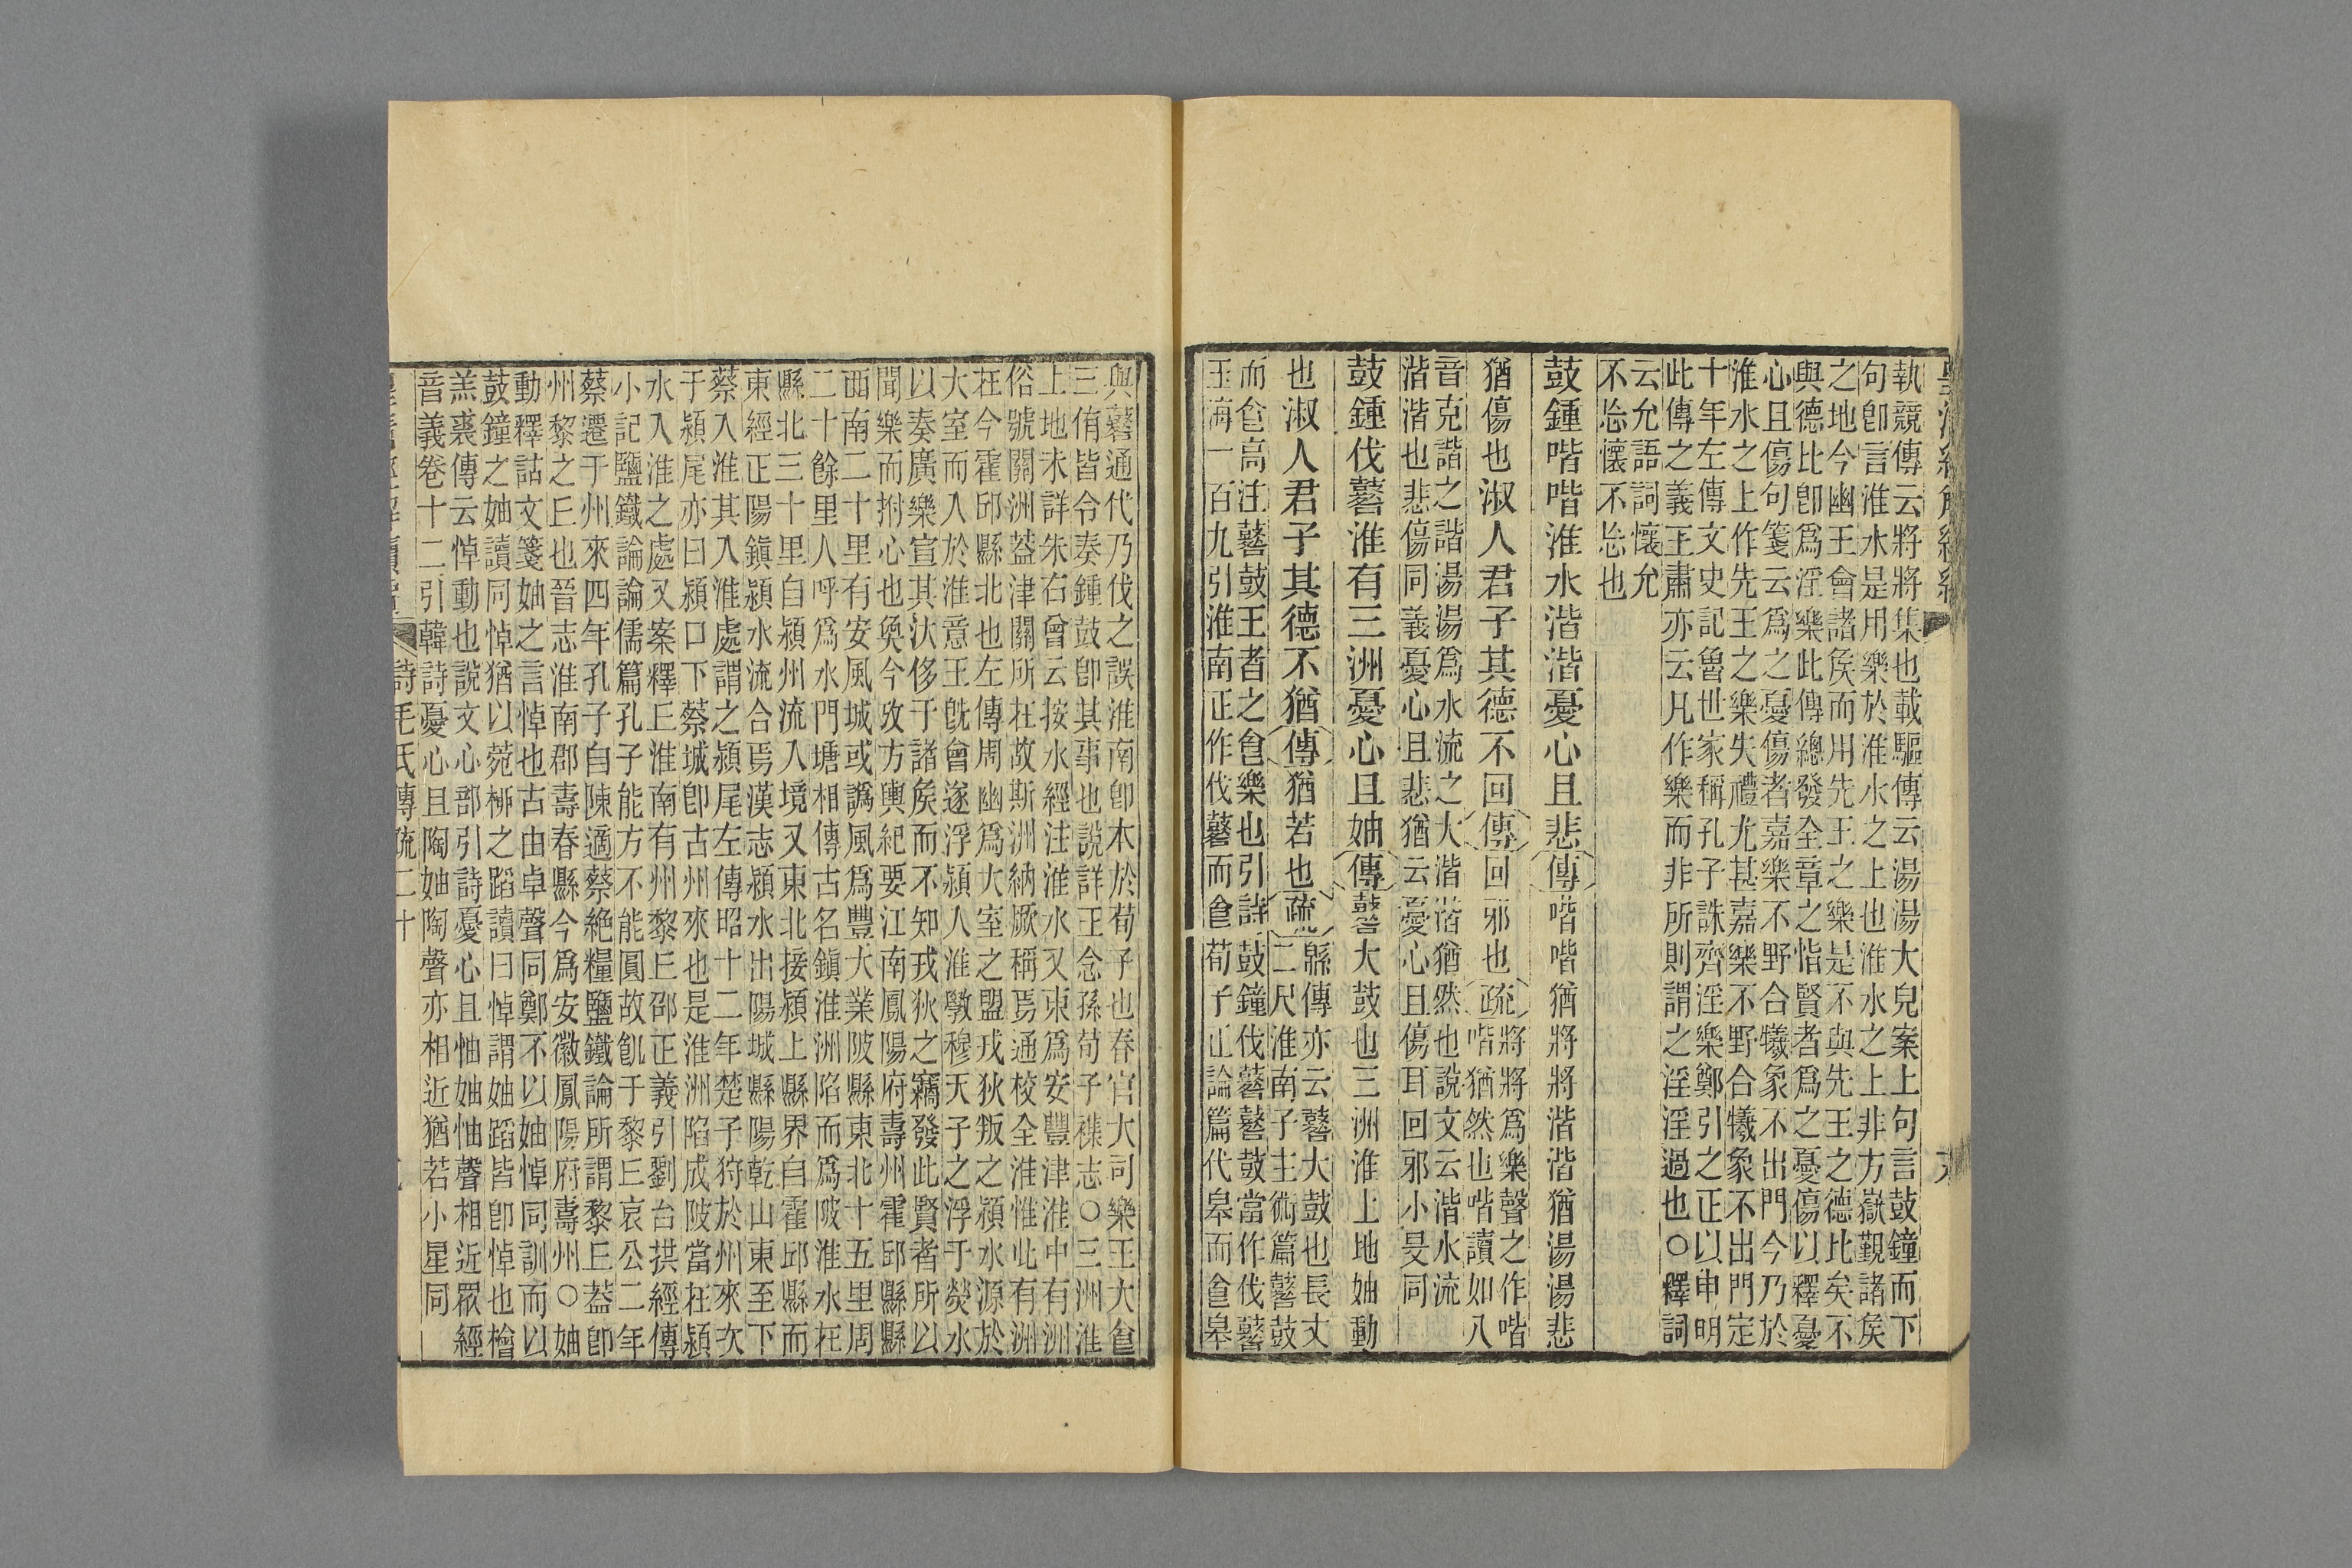 執競傳云將將集也載驅傳云湯湯大皃案上句言鼓鐘而下
句卽言淮水是用樂於淮水之上也淮水之上非方嶽覲諸矦
之地今幽王會諸矦而用先王之樂是不與先王之德比矣不
與德比卽爲淫樂此傳總發全章之恉賢者爲之憂傷以釋憂
心且傷句箋云爲之憂傷者嘉樂不野合犧象不出門今乃於
淮水之上作先王之樂失禮尤甚嘉樂不野合犧象不出門定
十年左傳文史記魯世家稱孔子誅齊淫樂鄭引之正以申明
此傳之義王肅亦云凡作樂而非所則謂之淫淫過也○釋詞
云允語詞懷允
不忘懷不忘也
鼓鍾喈喈淮水湝湝憂心且悲傳喈喈猶將將湝湝猶湯湯悲
猶傷也淑人君子其德不回傳回邪也疏將將爲樂聲之作喈
喈猶然也喈喈讀如八
音克諧之諧湯湯爲水流之大湝湝猶然也說文云湝水流
湝湝也悲傷同義憂心且悲猶云憂心且傷耳回邪小旻同
鼓鍾伐鼛淮有三洲憂心且妯傳鼛大鼓也三洲淮上地妯動
也淑人君子其德不猶傳猶若也疏緜傳亦云鼛大鼓也長丈
二尺淮南子主術篇鼛鼓
而食高注鼛鼓王者之食樂也引詩鼓鐘伐鼛鼛鼓當作伐鼛
玉海一百九引淮南正作伐鼛而食荀子正論篇代皋而食皋
與鼛通代乃伐之誤淮南卽本於荀子也春官大司樂王大食
三侑皆令奏鍾鼓卽其事也說詳王念孫荀子襍志○三洲淮
上地未詳朱右曾云按水經注淮水又東爲安豐津淮中有洲
俗號關洲葢津關所在故斯洲納厥稱焉通校全淮惟此有洲
在今霍邱縣北也左傳周幽爲大室之盟戎狄叛之潁水源於
大室而入於淮意王旣會遂浮潁入淮斆穆天子之浮于滎水
以奏廣樂宣其汏侈于諸矦而不知戎狄之竊發此賢者所以
聞樂而拊心也奐今攷方輿紀要江南鳳陽府壽州霍邱縣縣
西南二十里有安風城或譌風爲豐大業陂縣東北十五里周
二十餘里人呼爲水門塘相傳古名鎮淮洲陷而爲陂淮水在
縣北三十里自潁州流入境又東北接潁上縣界自霍邱縣而
東經正陽鎮潁水流合焉漢志潁水出陽城縣陽乾山東至下
蔡入淮其入淮處謂之潁尾左傳昭十二年楚子狩於州來次
于潁尾亦曰潁口下蔡城卽古州來也是淮洲陷成陂當在潁
水入淮之處又案釋𠀉淮南有州黎𠀉邵正義引劉台拱經傳
小記鹽鐵論論儒篇孔子能方不能圓故飢于黎𠀉哀公二年
蔡遷于州來四年孔子自陳適蔡絶糧鹽鐵論所謂黎𠀉葢卽
州黎之𠀉也晉志淮南郡壽春縣今爲安徽鳳陽府壽州○妯
動釋詁文箋妯之言悼也古由卓聲同鄭不以妯悼同訓而以
鼓鐘之妯讀同悼猶以菀桺之蹈讀曰悼謂妯蹈皆卽悼也檜
羔裘傳云悼動也說文心部引詩憂心且怞妯怞聲相近眾經
音義卷十二引韓詩憂心且陶妯陶聲亦相近猶若小星同
詩毛氏傳疏二十